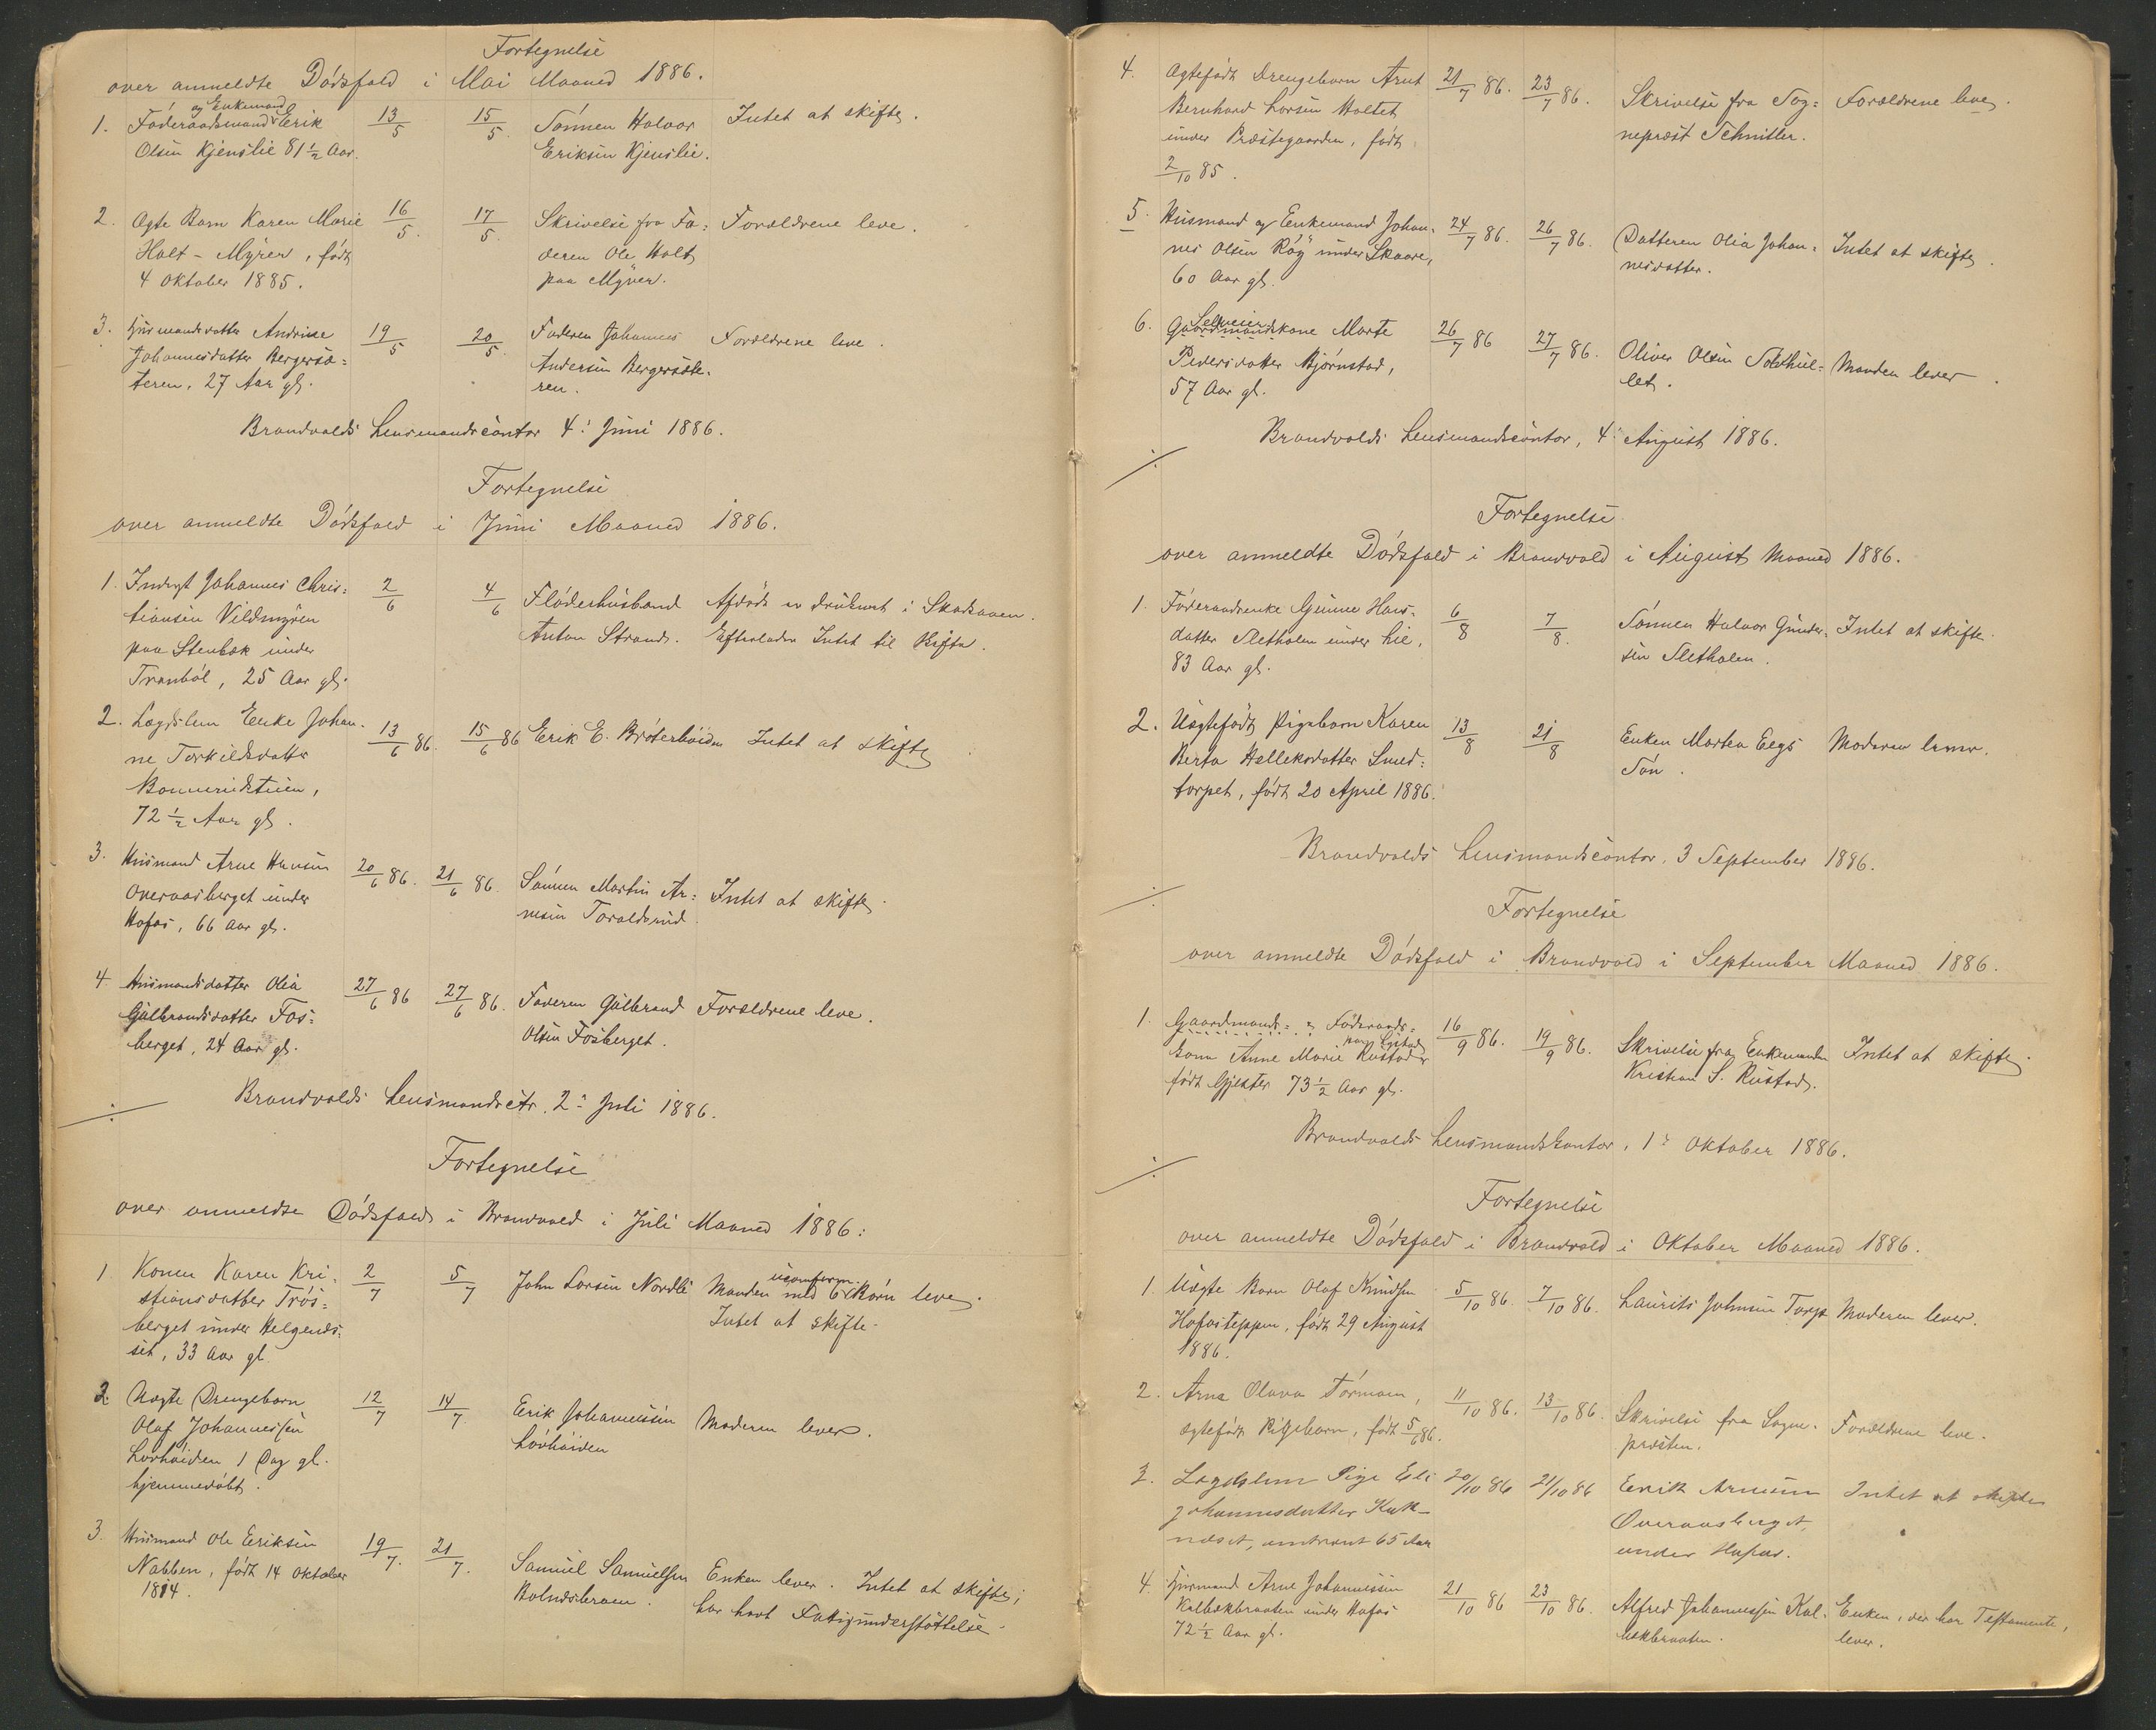 Fortegnelse
over anmeldte Dødsfald i Mai Maaned 1886.
og Enkemand
1. Føderaadsmand Erik 13/5 15/5. Sønnen Halvor Intet at skifte.
Olsen Kjenslie 81 1/2 Aar. Eriksen Kjenslie.
2. Ægte Barn Karen Marie 16/5. 17/5. Skrivelse fra Fa= Forældrene leve.
Holt - Myren, født deren Ole Holt
4 Oktober 1885. paa Myren.
3. Husmandsdatter Andrine 19/5 20/5. Faderen Johannes Forældrene leve.
Johannesdatter Bergersæ= Andersen Bergersæte-
teren, 27 Aar gl. ren.
Brandvolds Lensmandscontor 4: Juni 1886.
Fortegnelse
over anmeldte Dødsfald i Juni Maaned 1886.
1. Inderst Johannes Chris= 2/6 4/6 Fløderhusbond Afdøde er druknet i Skasaaen.
tiansen Vildmyren Anton Strand. Efterlader Intet til Skifte.
paa Stenbæk under
Tranbøl, 25 Aar gl.
2. Lægdslem Enke Johan- 13/6 86. 15/6 86 Erik E. Bråterhøiden Intet at skifte
ne Torkildsdatter
72 1/2 Aar gl.
3. Husmand Arne Hansen 20/6 86. 21/6 86. Sønnen Martin Ar= Intet at skifte.
Overaasberget under nesen Toraldsrud.
Hofos, 66 Aar gl.
4 Husmandsdatter Olia 27/6 86 27/6 86. Faderen Gulbrand Forældrene leve.
Gulbrandsdatter Fos= Olsen Fosberget.
berget, 24 Aar gl.
Brandvolds Lensmandsctr. 2: Juli 1886.
Fortegnelse
over anmeldte Dødsfald i Brandvold i Juli Maaned 1886:
1 Konen Karen Kri- 2/7 5/7 John Larsen Nordli Manden med 6 Børn leve.
stiansdatter Trøs= Intet at skifte.
berget under Helgeneds-
set, 33 Aar gl.
2. Uægte Drengebarn 12/7 14/7 Erik Johannessen Moderen lever.
Olaf Johannessen Lövhöiden
Lövhöiden 1 Dag gl.
hjemmedøbt.
3. Husmand Ole Eriksen 19/7. 21/7. Samuel Samuelsen Enken lever. Intet at skifte;
Nabben, født 14 Oktober har havt Fattigunderstøttelse.
1814.
4. Ægtefødt Drengebarn Arnt 21/7 86. 23/7 86. Skrivelse fra Sog= Forældrene leve.
Bernhard Larsen Holtet neprest Schnitler.
under Præstegaarden, født
2/10 85.
5. Husmand og Enkemand Johan- 24/7 86. 26/7 86. Datteren Olia Johan= Intet at skifte.
nes Olsen Røy under Skaare, nesdatter.
60 Aar gl.
Selveier
6. Gaardmandskone Marte 26/7 86 27/7 86. Oliver Olsen Manden lever.
Pedersdatter Bjørnstad,
57 Aar gl.
Brandvolds Lensmandscontor, 4: August 1886.
Fortegnelse
over anmeldte Dødsfald i Brandvold i August Maaned 1886.
1. Føderaadsenke Gunne Hans- 6/8 7/8. Sønnen Halvor Gunder- Intet at skifte.
datter Sletholen under Lie, sen Sletholen.
83 Aar gl.
2. Uægtefødt Pigebarn Karen 13/8 21/8 Enken Martea Eegs Moderen lever.
Berta Halleksdatter Smed= Søn.
torpet, født 20 April 1886.
Brandvolds Lensmandscontor, 3 September 1886.
Fortegnelse
over anmeldte Dødsfald i Brandvold i September Maaned 1886.
1. Gaardmands= & Føderaads= 16/9 86. 19/9 86. Skrivelse fra Enkemanden Intet at skifte.
kone Anne Marie Rustad Kristian S. Rustad.
født Gjester 73 1/2 Aar gl.
Brandvolds Lensmandskontor, 1: Oktober 1886.
Fortegnelse
over anmeldte Dødsfald i Brandvold i Oktober Maaned 1886.
1. Uægte Barn Olaf Knudsen 5/10 86. 7/10 86. Laurits Johnsen Torp Moderen lever.
Hofosteppen, født 29 August
1886.
2. Arna Olava Tørmoen, 11/10 86. 13/10 86. Skrivelse fra Sogne- Forældrene leve.
ægtefødt Pigebarn, født 5/6 86. præsten.
3. Lægdslem Pige Eli 20/10 86 21/10 86 Erik Arnesen Intet at skifte
Johannesdatter Kuk- Overaasberget,
næset, omtrent 65 Aar under Hofos.
4. Husmand Arne Johannessen 21/10 86 23/10 86. Alfred Johannessen Kal- Enken, der har Testamente,
Kalbækbraaten under Hofos bækbraaten. lever.
72 1/2 Aar gl.